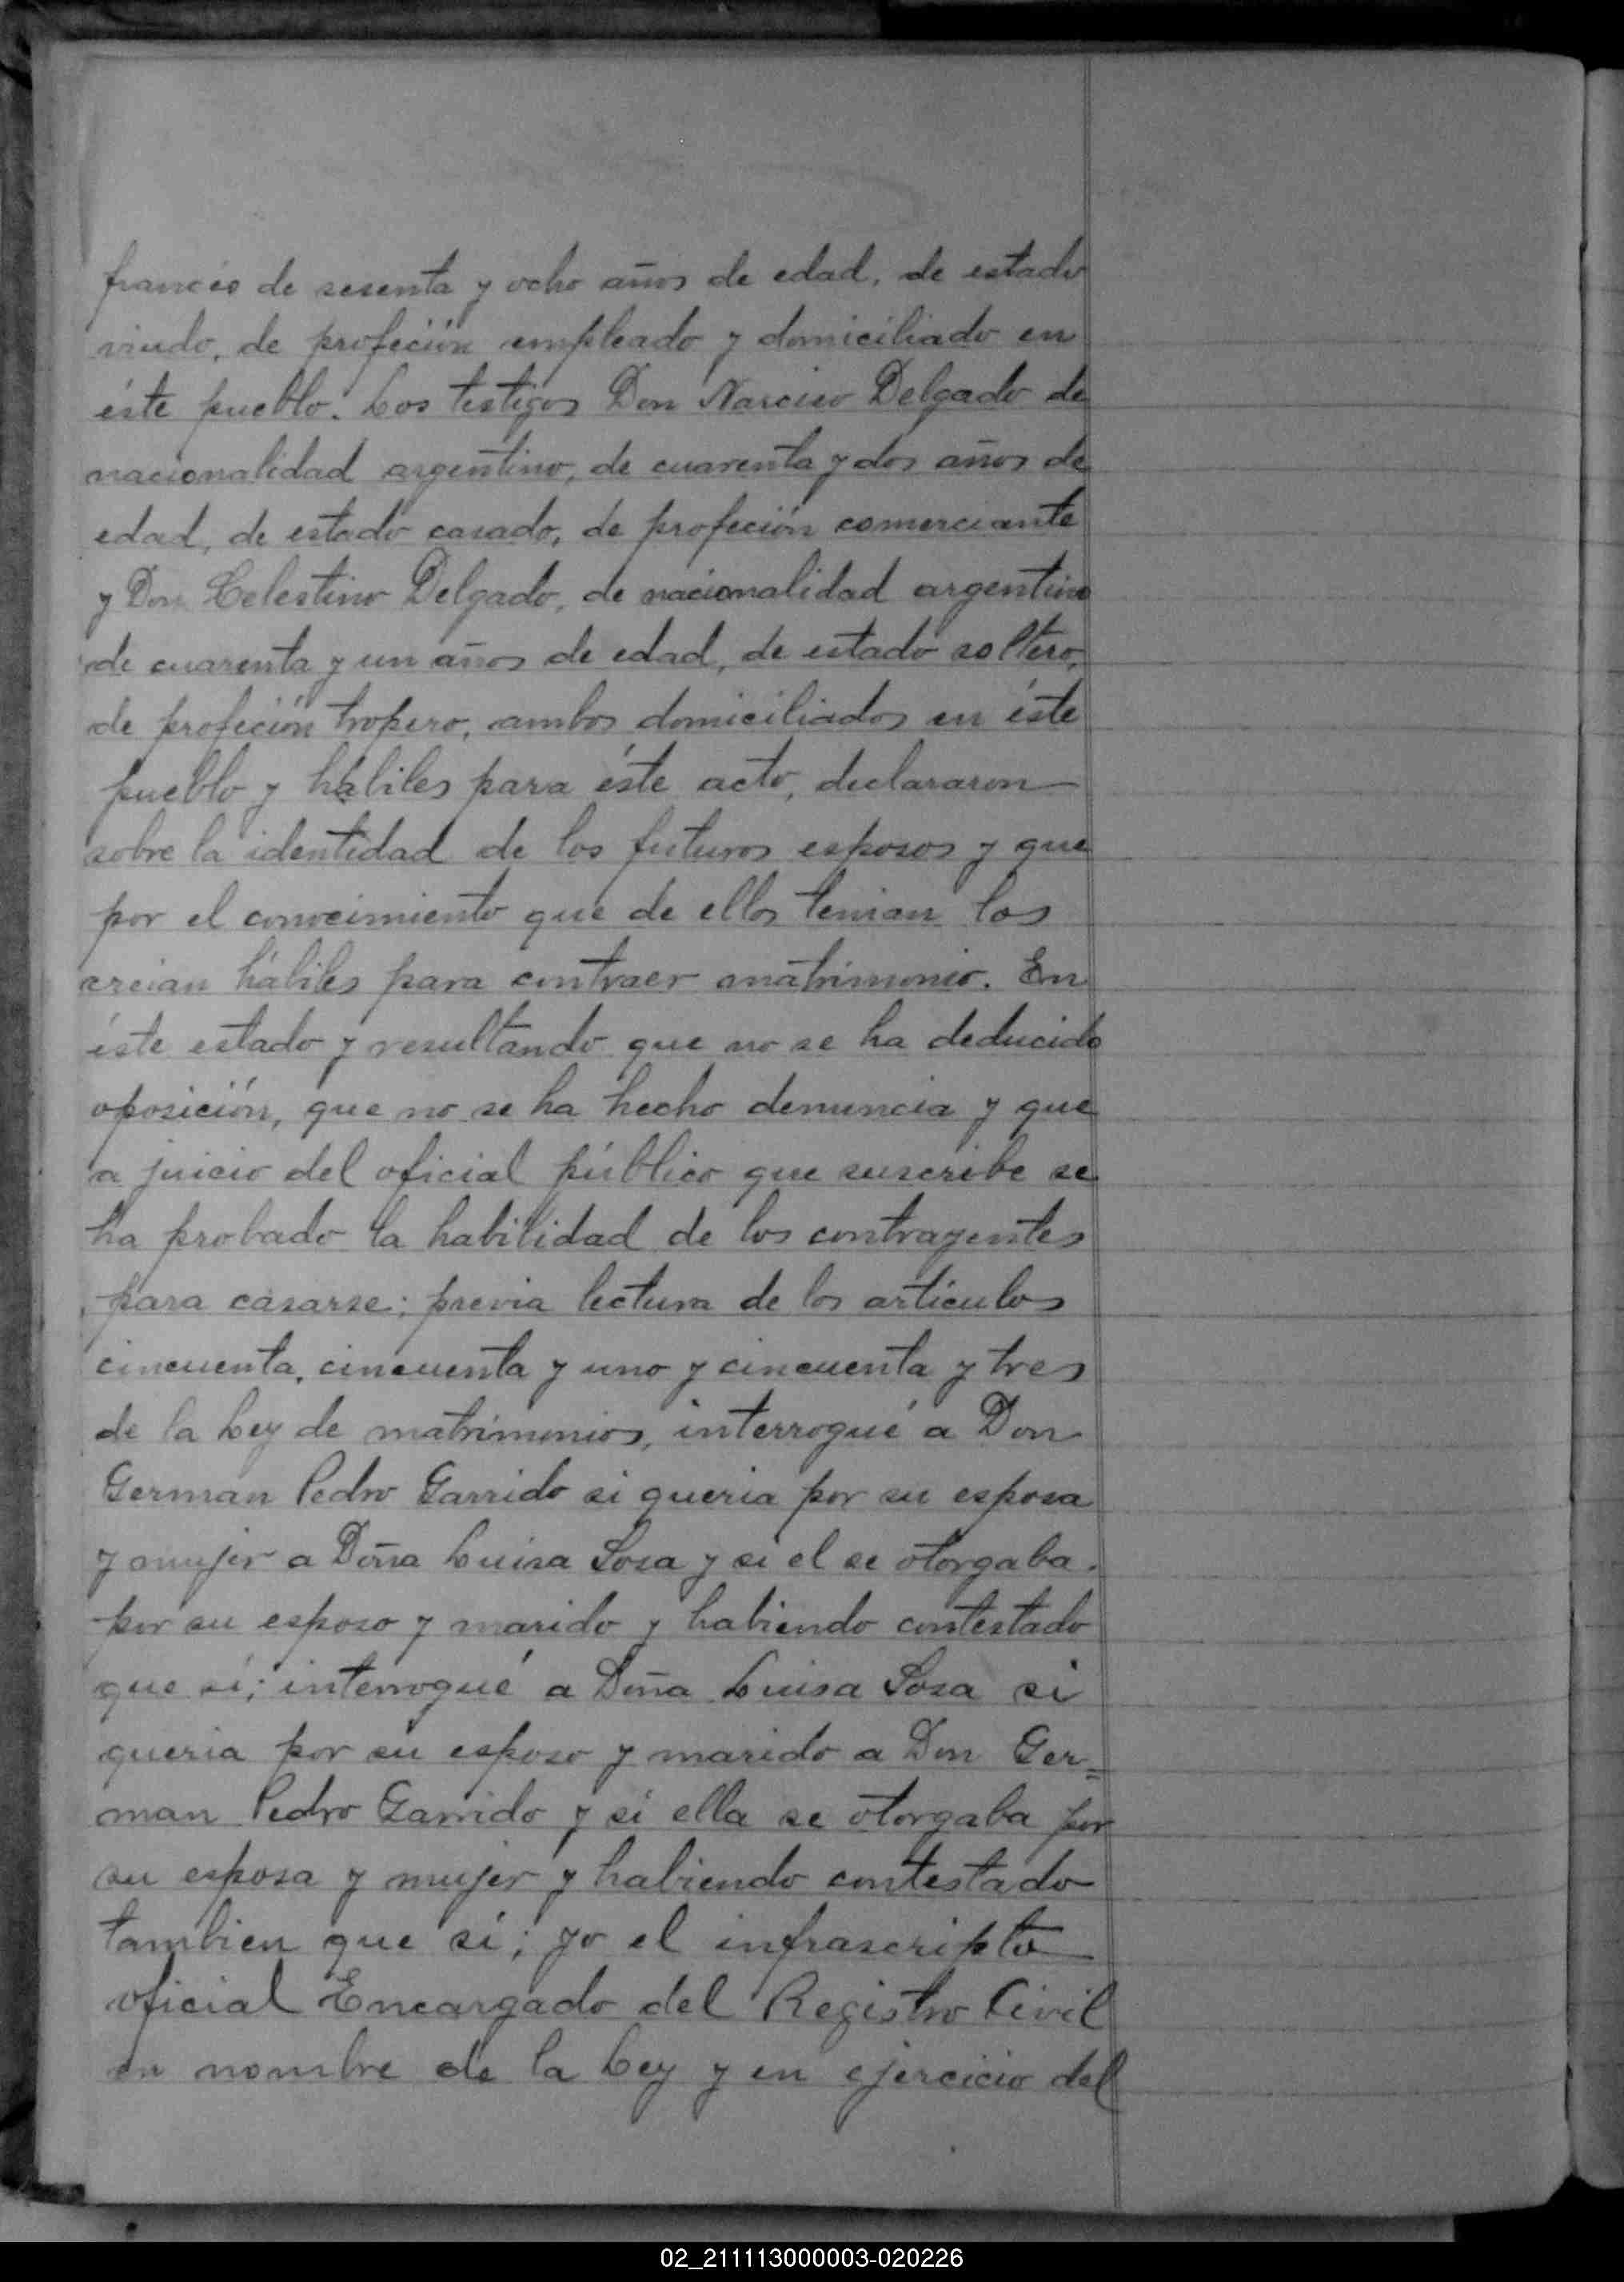 francés de sesenta y ocho años de edad, de estado
viudo, de profeción empleado y domiciliado en
éste pueblo. Los testigos Don Narciso Delgado de
nacionalidad argentino, de cuarenta y dos años de
edad, de estado casado, de profeción comerciante
y Don Celestino Delgado, de nacionalidad argentino
de cuarenta y un años de edad, de estado soltero,
de profeción tropero, ambos domiciliados en éste
pueblo y hábiles para éste acto, declararon
sobre la identidad de los futuros esposos y que
por el conocimiento que de ellos tenian los
creian hábiles para contraer matrimonio. En
éste estado y resultando que no se ha deducido
oposición, que no se ha hecho denuncia y que
a juicio del oficial público que suscribe se
ha probado la habilidad de los contrayentes
para casarse; previa lectura de los artículos
cincuenta, cincuenta y uno y cincuenta y tres
de la Ley de matrimonios, interrogué a Don
German Pedro Garrido si queria por su esposa
y mujer a Doña Luisa Sosa y si el se otorgaba
por su esposo y marido y habiendo contestado
que sí; interrogué a Doña Luisa Sosa si
queria por su esposo y marido a Don Ger=
man Pedro Garrido y si ella se otorgaba por
su esposa y mujer y habiendo contestado
tambien que sí; yo el infrascripto
oficial Encargado del Registro Civil
en nombre de la Ley y en ejercicio del
02_211113000003-020226